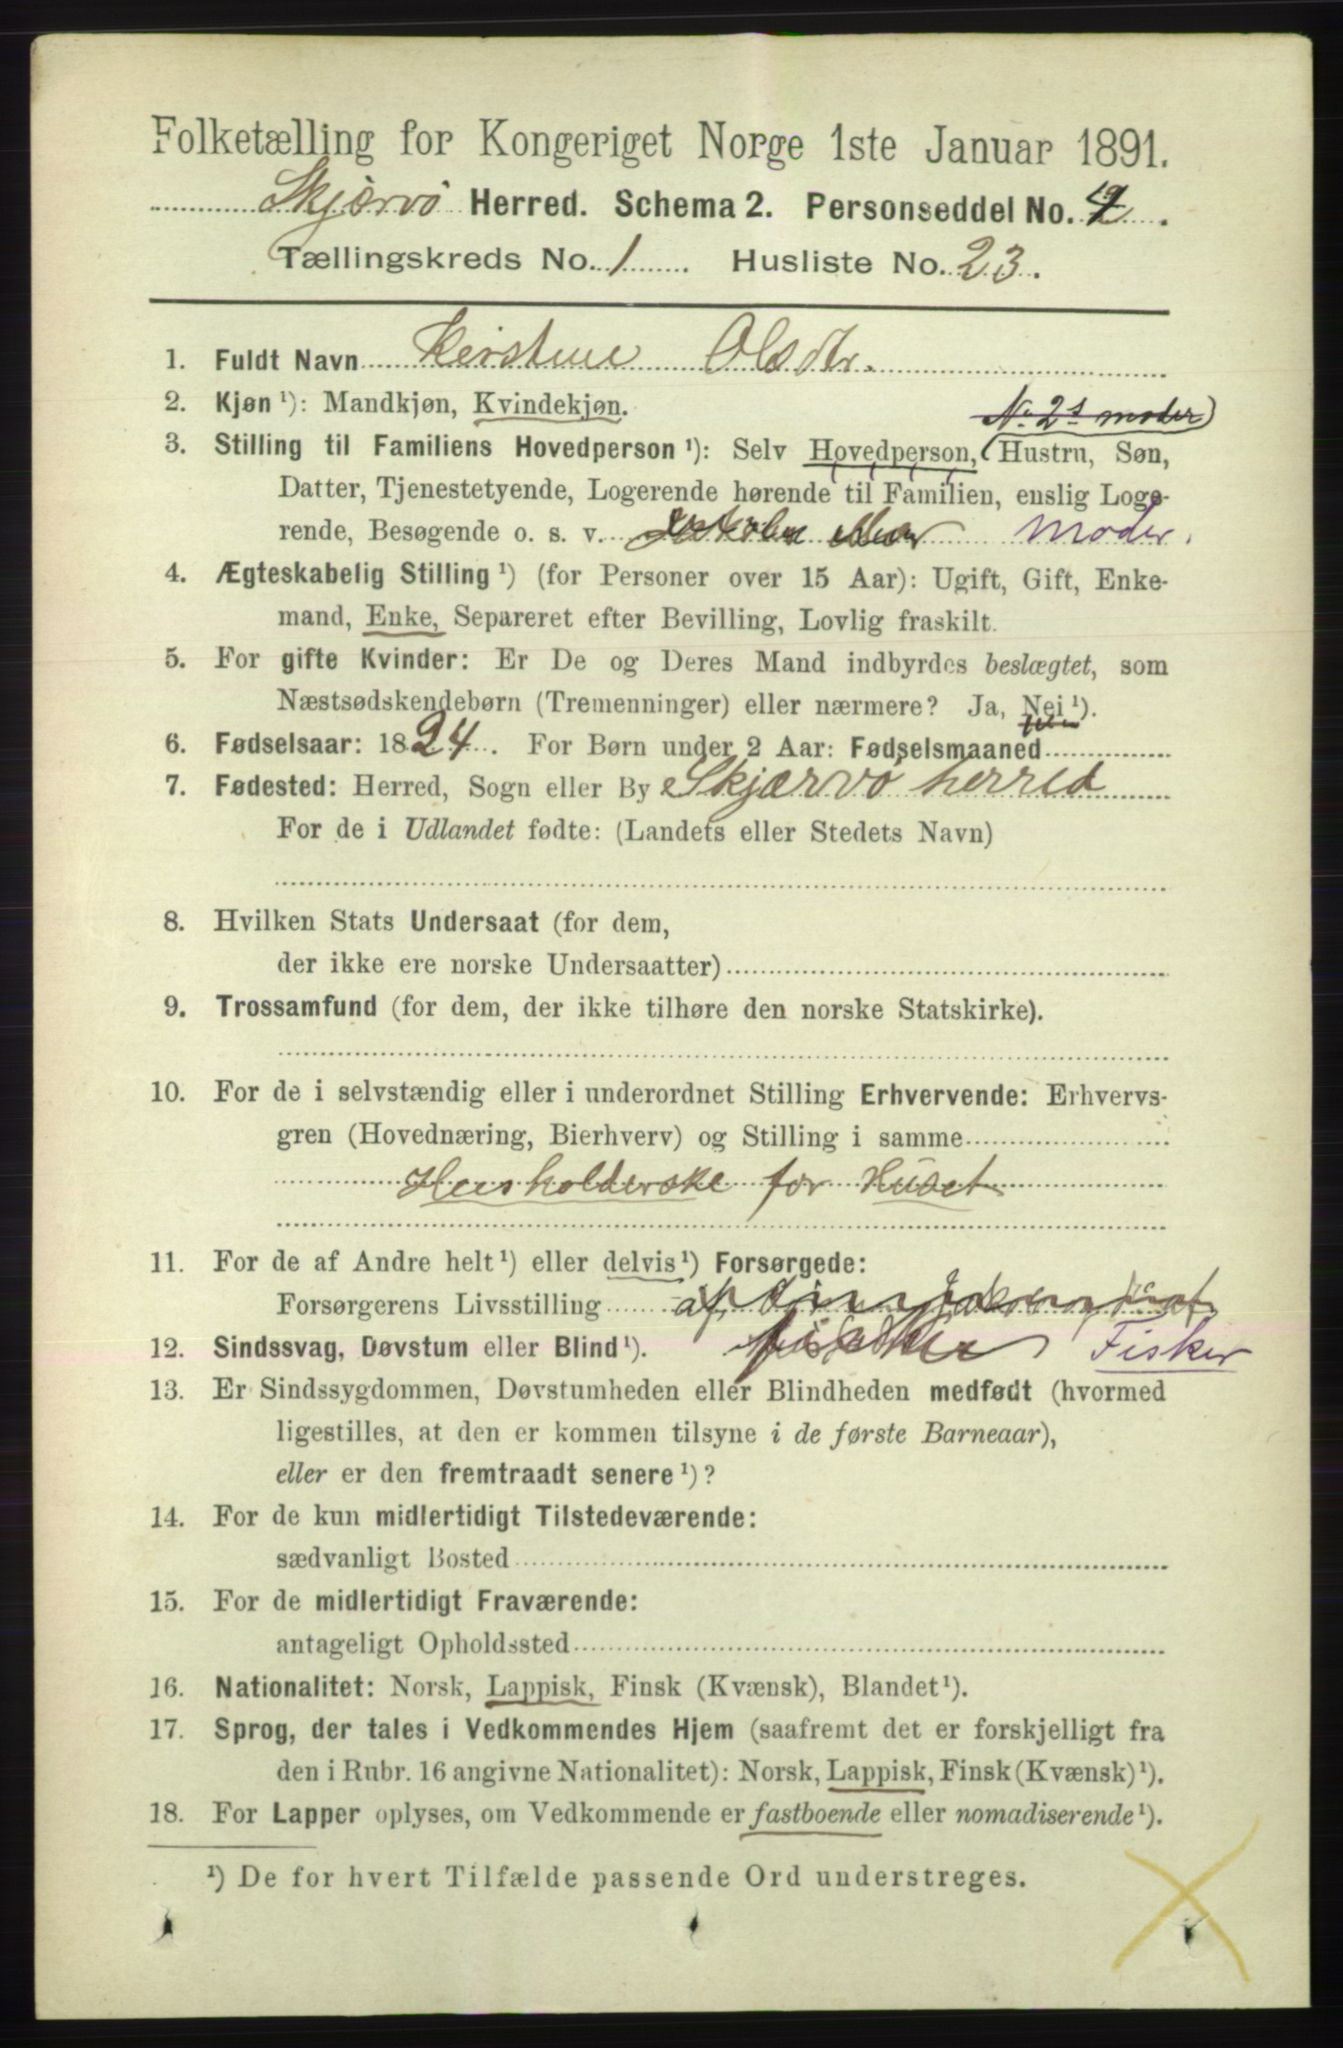 Folketælling for Kongeriget Norge 1ste Januar 1891.
Skjærvö Herred. Schema 2. Personseddel No.
Tællingskreds No. 1 Husliste No. 23.
1. Fuldt Navn Kirstine Olsdtr.
2. Kjøn ¹): Mandkjøn, Kvindekjøn.
No. 2s moder
3. Stilling til Familiens Hovedperson ¹): Selv Hovedperson, Hustru, Søn,
Datter, Tjenestetyende, Logerende hørende til Familien, enslig Loge-
rende, Besøgende o. s. v. Moder.
4. Ægteskabelig Stilling ¹) (for Personer over 15 Aar): Ugift, Gift, Enke-
mand, Enke, Separeret efter Bevilling, Lovlig fraskilt.
5. For gifte Kvinder: Er De og Deres Mand indbyrdes beslægtet, som
Næstsødskendebørn (Tremenninger) eller nærmere? Ja, Nei ¹).
6. Fødselsaar: 1824. For Børn under 2 Aar: Fødselsmaaned
7. Fødested: Herred, Sogn eller By Skjærvö herred
For de i Udlandet fødte: (Landets eller Stedets Navn)
8. Hvilken Stats Undersaat (for dem,
der ikke ere norske Undersaatter)
9. Trossamfund (for dem, der ikke tilhøre den norske Statskirke).
10. For de i selvstændig eller i underordnet Stilling Erhvervende: Erhvervs-
gren (Hovednæring, Bierhverv) og Stilling i samme
Husholderske for Huset
11. For de af Andre helt ¹) eller delvis ¹) Forsørgede:
Forsørgerens Livsstilling af
12. Sindssvag, Døvstum eller Blind ¹). Fisker
13. Er Sindssygdommen, Døvstumheden eller Blindheden medfødt (hvormed
ligestilles, at den er kommen tilsyne i de første Barneaar),
eller er den fremtraadt senere ¹)?
14. For de kun midlertidigt Tilstedeværende:
sædvanligt Bosted
15. For de midlertidigt Fraværende:
antageligt Opholdssted
16. Nationalitet: Norsk, Lappisk, Finsk (Kvænsk), Blandet ¹).
17. Sprog, der tales i Vedkommendes Hjem (saafremt det er forskjelligt fra
den i Rubr. 16 angivne Nationalitet): Norsk, Lappisk, Finsk (Kvænsk) ¹).
18. For Lapper oplyses, om Vedkommende er fastboende eller nomadiserende ¹).
¹) De for hvert Tilfælde passende Ord understreges.